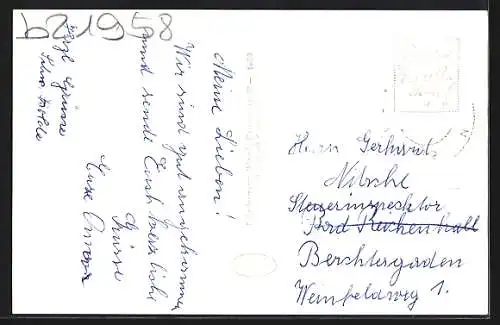 9219558
Meine Lieben!
Wir sind gut angekommen
und sende Euch herzliche
Grüsse
Eure
Herzl Grüsse
Herrn Gerhardt
Nitsche
Steuerinspektor
Bad Reichenhall
Berchtesgaden
Weinfeldweg 1.